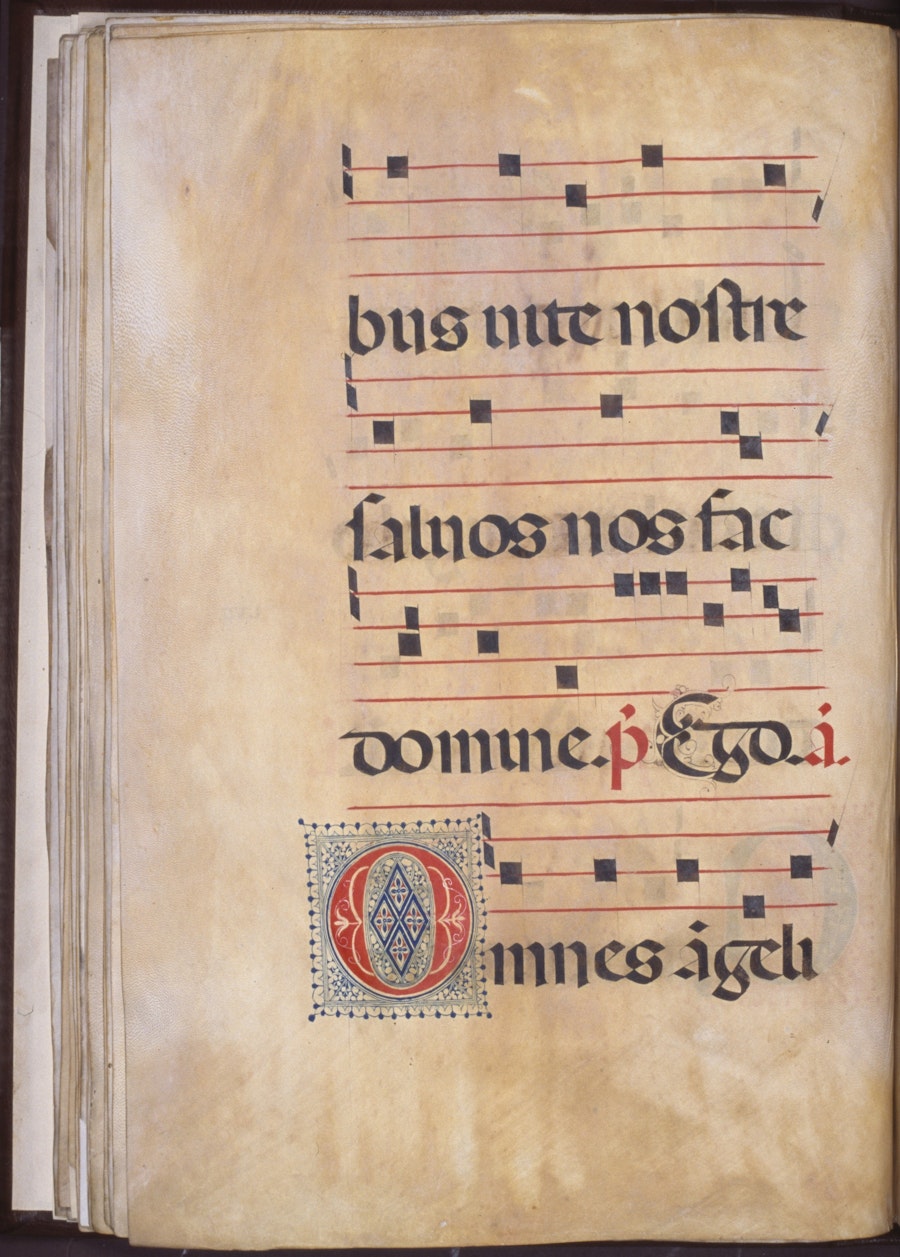 bus uite nostre
saluos nos fac
domine. p̄ Ego. a̾.
Omnes āgeli